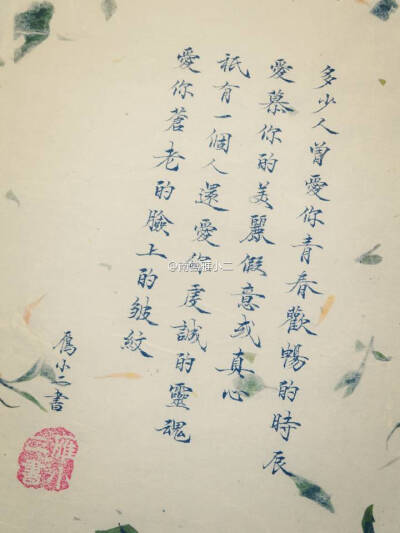 多少人曾愛你青春歡暢的時辰
愛慕你的美麗假意或真心
祇有一個人還愛你虔誠的靈魂
愛你蒼老的臉上的皺紋
雁小二書